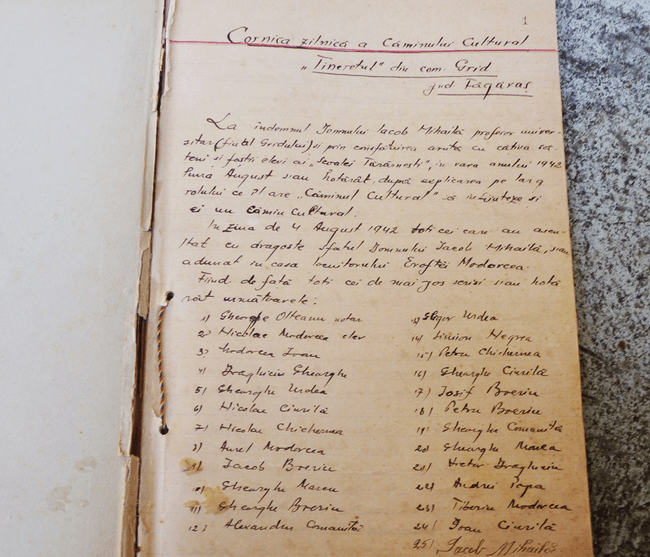 1
Cornica zilnică a Căminului Cultural
„Tineretul" din com. Grid
jud Făgăraș
La îndemnul Domnului Iacob Mihailă profesor univer-
sitar (fiul Gridului) și prin consfătuirea avută cu câtiva să-
teni și foștii elevi ai „Școalei Țărănești", în vara anului 1942
luna August s'au hotărât, după explicarea pe larg
rolului ce îl are „Căminul Cultural" să înființeze și
ei un cămin cultural.
In ziua de 4 August 1942 toți cei cari au ascul-
tat cu dragoste sfatul Domnului Iacob Mihailă, s'au
adunat in casa locuitorului Eroftei Modorcea.
Fiind de față toti cei de mai jos scriși s'au hotă
rât următoarele:
1) Gheorghe Olteanu notar
2) Nicolae Modorcea elev
3) Modorcea Ioan
4) Draghiciu Gheorghe
5) Gheorghe Urdea
6) Nicolae Ciurilă
7) Nicolae Chichernea
8) Aurel Modorcea
9) Iacob Boeriu
10) Gheorghe Marcu
11) Gheorghe Boeriu
12) Alexandru Comaniță
13) Urdea
14) Simion Negrea
15) Petru Chichernea
16) Gheorghe Ciurilă
17) Iosif Boeriu
18) Petru Boeriu
19) Gheorghe Comaniță
20) Gheorghe
21) Victor Draghiciu
22) Andrei Popa
23) Tiberiu Modorcea
24) Ioan Ciurilă
25) Iacob Mihailă